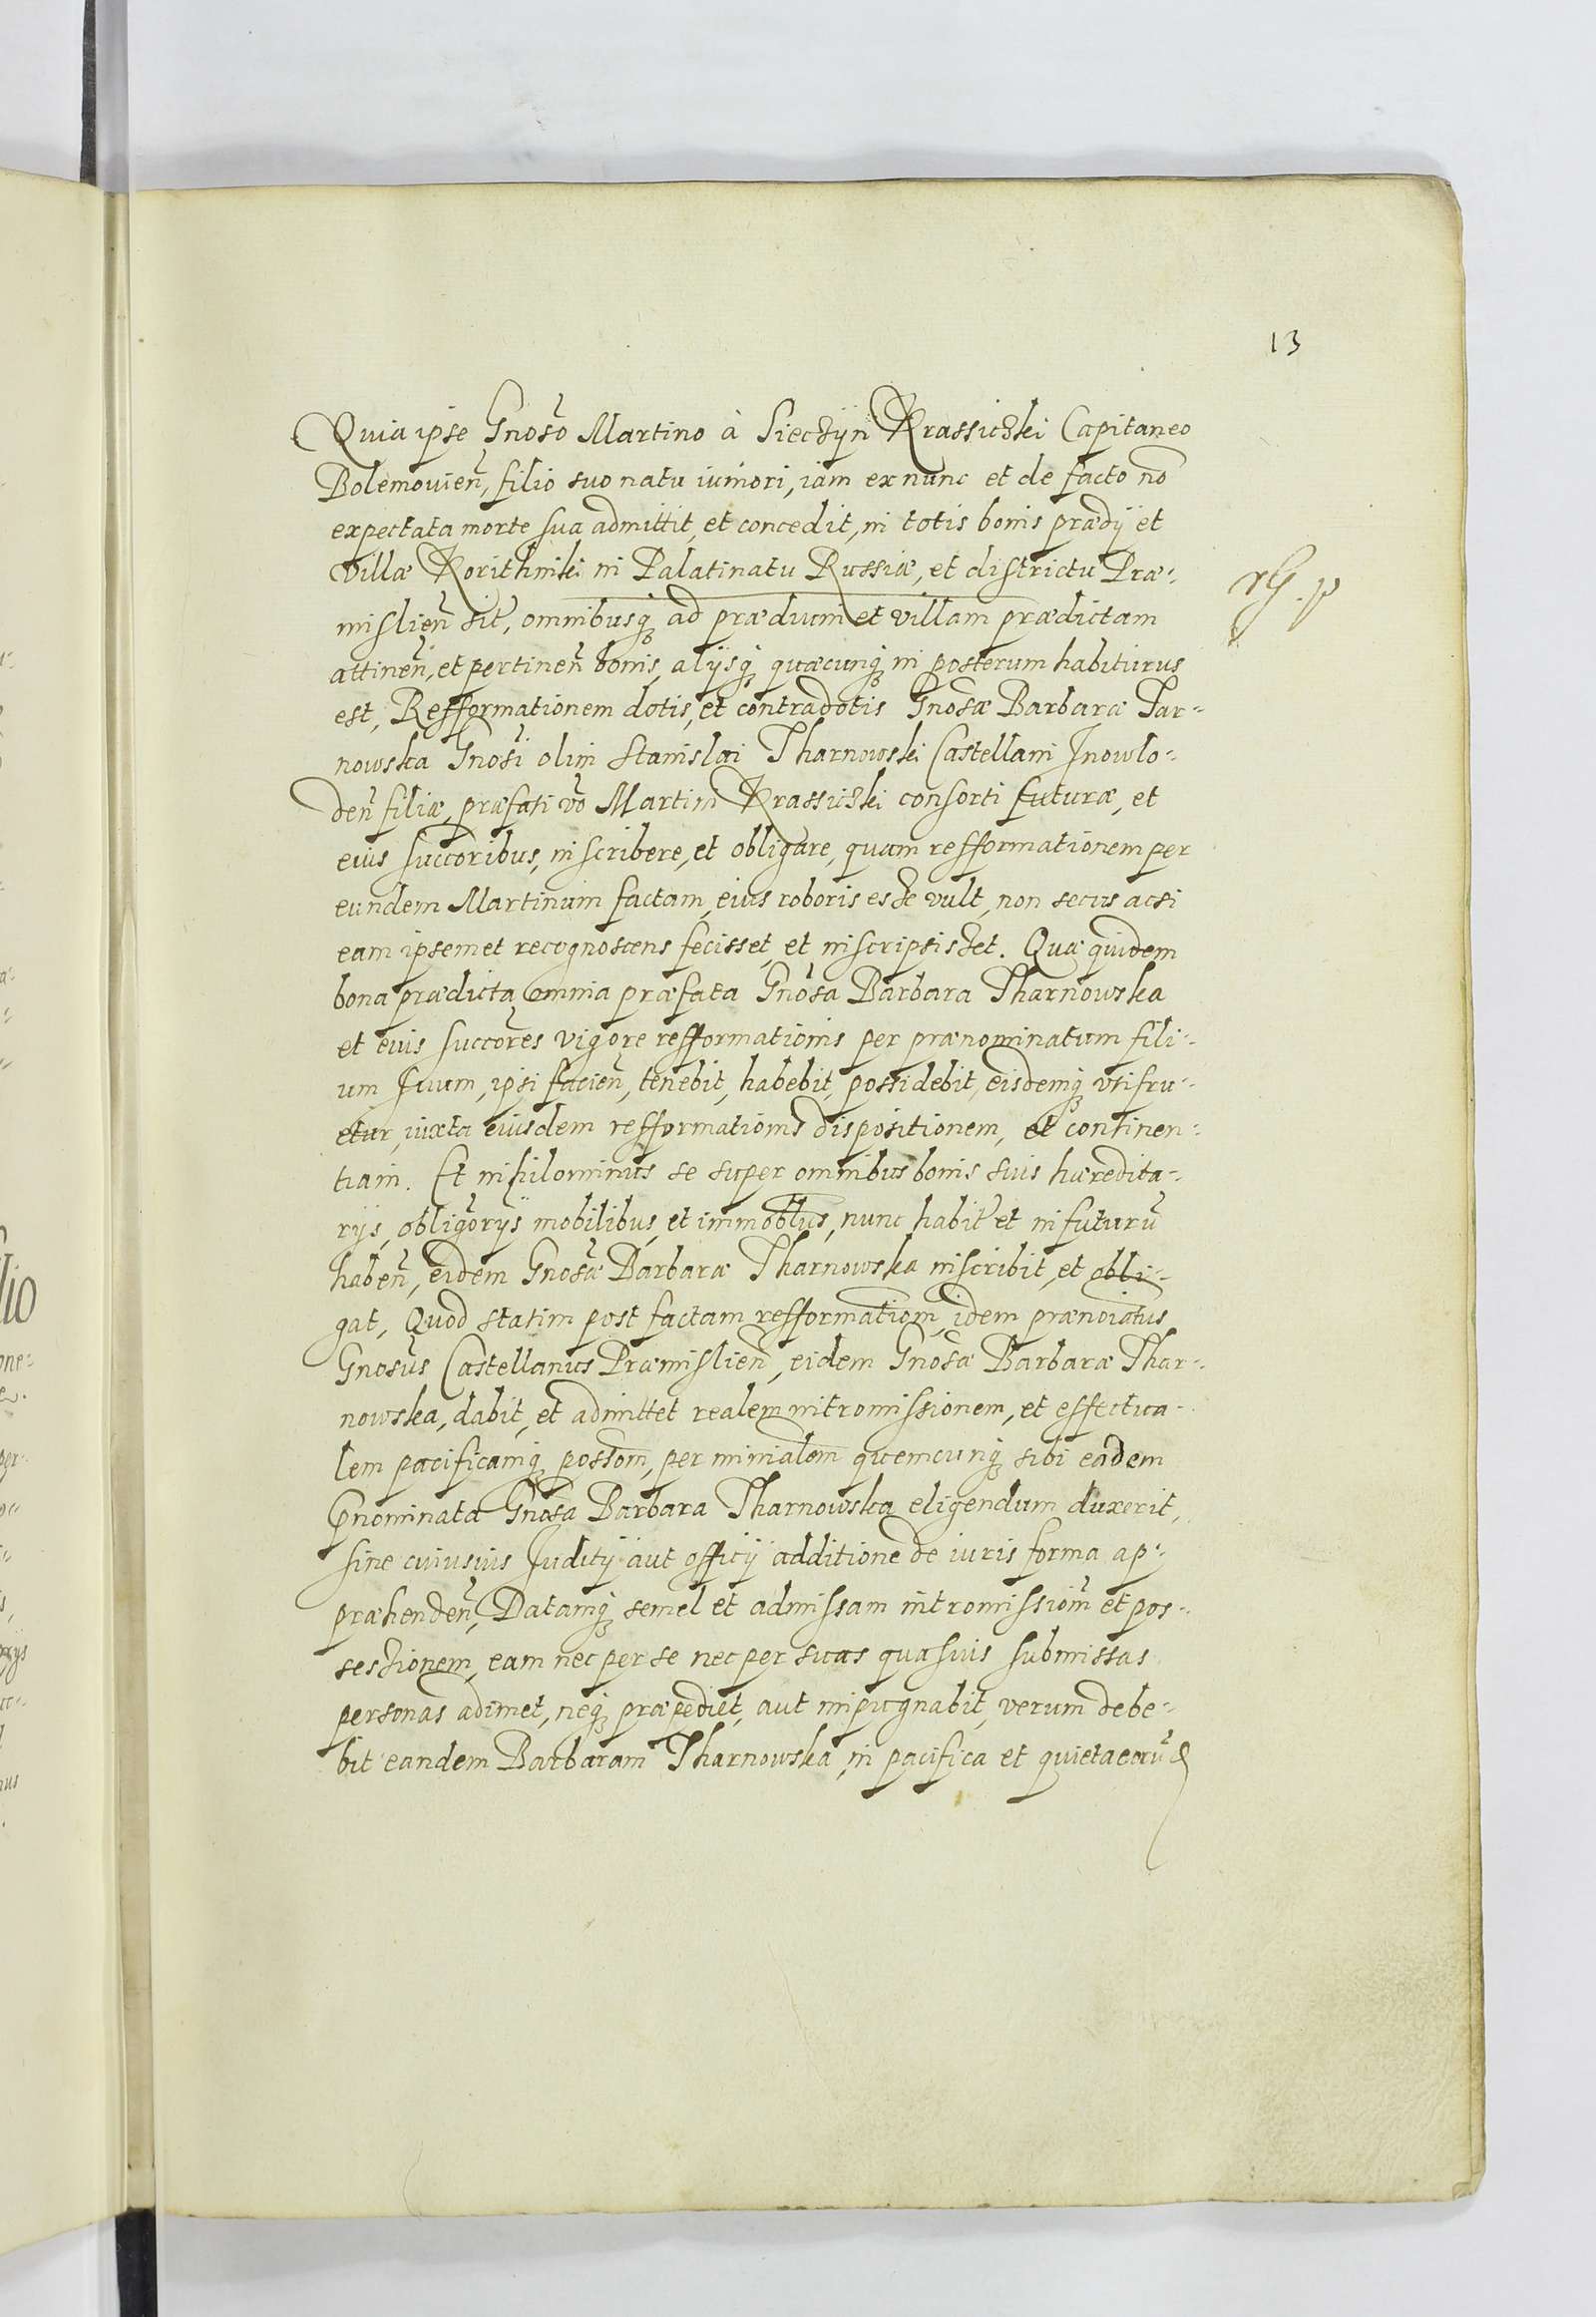 13
Quia ipse Gnoso Martino à Sieczyn Krassiczki Capitaneo
Bolemouien, filio suo natu iuniori, iam ex nunc et de facto no
expectata morte sua admittit, et concedit, in totis bonis prædij et
villæ Korithniki in Palatinatu Russiæ, et districtu Præ-
mislien sit, omnibusq ad prædium et villam prædictam
attinen, et pertinen bonis, alijsq quæcunq in posterum habiturus
est, Refformationem dotis, et contradotis Gnosæ Barbaræ Tar-
nowska Gnosi olim Stanislai Tharnowski Castellani Inowlo-
den filiæ, præfati vo Martini Krassiczki consorti futuræ, et
eius succoribus, inscribere, et obligare, quam refformationem per
eundem Martinum factam, eius roboris esse vult, non secus acsi
eam ipsemet recognoscens fecisset, et inscripsisset. Quæ quidem
bona prædicta omnia præfata Gnosa Barbara Tharnowska
et eius succores vigore refformationis per prænominatum fili-
um suum, ipsi facien, tenebit, habebit, possidebit, eisdemq vtifru-
etur, iuxta eiusdem refformationis dispositionem, et continen-
tiam. Et nihilominus se super omnibus bonis suis hæredita-
rijs, obligorijs mobilibus, et immoblus, nunc habit et in futuru
haben, eidem Gnosæ Barbaræ Tharnowska inscribit, et obli-
gat, Quod statim post factam refformationm, idem prænoiatus
Gnosus Castellanus Præmislien, eidem Gnosæ Barbaræ Thar-
nowska, dabit, et admittet realem intromissionem, et effectua-
lem pacificamq possom, per minialem quemcunq sibi eadem
pnominata Gnosa Barbara Tharnowska eligendum duxerit,
sine cuiusuis Judicij aut officij additione de iuris forma ap-
præhenden, Datamq semel et admissam intromissionm et pos-
sessionem, eam nec per se nec per suas quasuis submissas
personas adimet, neq præpediet, aut impugnabit, verum debe-
bit eandem Barbaram Tharnowska, in pacifica et quieta eoru